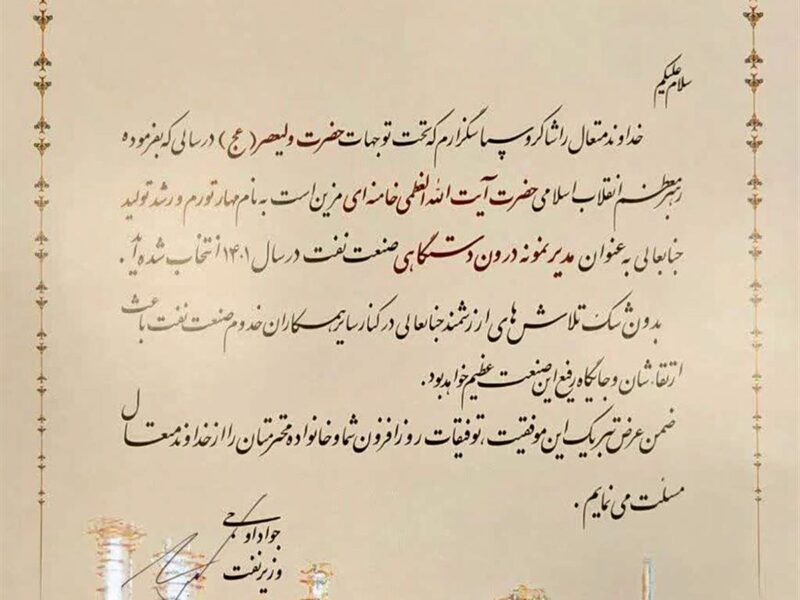 سلام علیکم
خداوند متعال را شاکر و سپاسگزارم که تحت توجهات حضرت ولیعصر (عج) در سالی که بفرموده
رهبر معظم انقلاب اسلامی حضرت آیت الله العظمی خامنه ای مزین است به نام مهار تورم و رشد تولید
جنابعالی به عنوان مدیر نمونه درون دستگاهی صنعت نفت در سال ۱۴۰۱ انتخاب شده اید.
بدون شک تلاش های ارزشمند جنابعالی در کنار سایر همکاران خدوم صنعت نفت باعث
ارتقاء شان و جایگاه رفیع این صنعت عظیم خواهد بود.
ضمن عرض تبریک این موفقیت، توفیقات روز افزون شما و خانواده محترمتان را از خداوند متعال
مسئلت می نمایم.
جواد اوجی
وزیر نفت